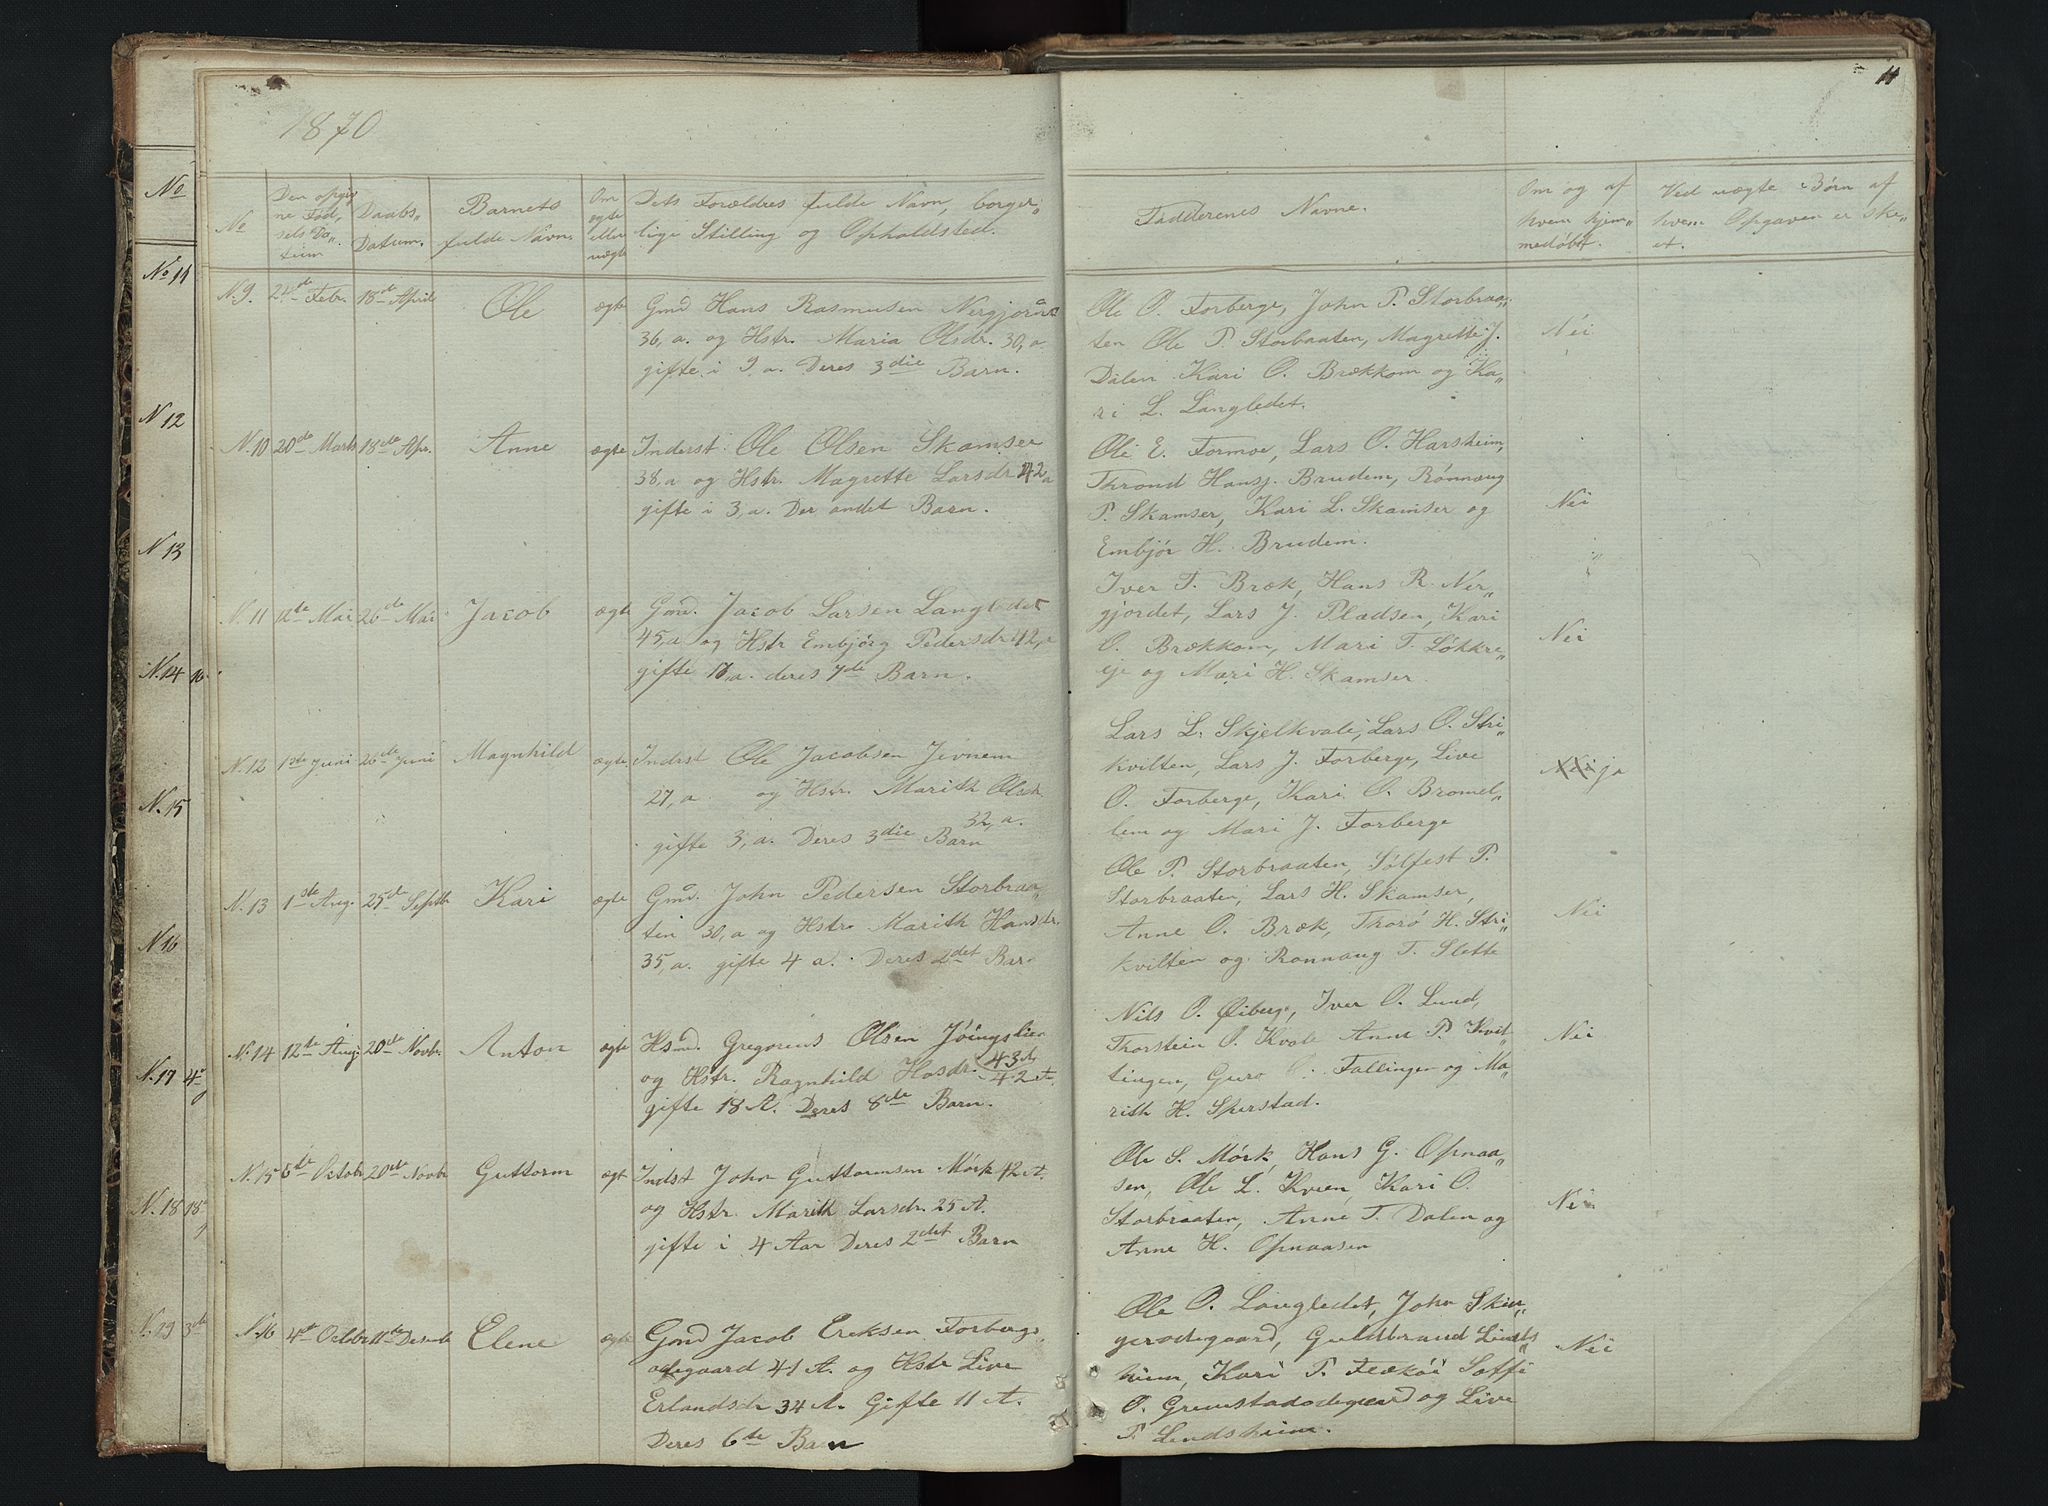 1870
11
No
Den opgiv
ne Fød„
sels Da„
tum
Daabs„
Datum.
Barnets
fulde Navn.
Om
ægte
eller
uægte
Dets Forældres fulde Navn, borger„
lige Stilling og Opholdsted.
Fadderenes Navne.
Om og af
hvem hjem„
medøbt.
Ved uægte Børn af
hvem Opgaven er ske„
et.
N. 9. Febr. 18de April Ole ægte
Gmd Hans Rasmusen Nergjordet
36, a. og Hstr. Maria Olsdr. 30, a.
gifte i 9 a. Deres 3die Barn.
Ole O. Forberge, John P. Storbraa„
ten Ole P. Storbraaten, Magrette J.
Dalen Kari O. Brækkom og Ka„
ri L. Langledet.
Nei
N. 10 20de Marts 18de Apr. Anne ægte
Inderst Ole Olsen Skamser
38, a og Hstr. Magrette Larsdr 42 a
gifte i 3, a. Der andet Barn.
Ole E. Formoe, Lars O. Harsheim,
Thrond Hansj. Brudem, Rønnaug
P. Skamser, Kari L. Skamser og
Embjør H. Brudem.
Nei
N. 11 Mai 26de Mai Jacob ægte
Gmd. Jacob Larsen Langledet
45, a og Hstr Embjørg Pedersdr 42, a
gifte a. deres 7de Barn.
Iver T. Bræk, Hans R. Ner„
gjordet, Lars J. Pladsen, Kari
O. Brækkom, Mari T. Løkkre„
eje og Mari H. Skamser.
Nei
N. 12 1ste Juni 26de Juni Magnhild ægte
Indrst Ole Jacobsen Jevnem
27, a. og Hstr. Marith Olsdr.
32, a.
gifte 3, a. Deres 3die Barn
Lars L. Skjelkvale, Lars O. Stri„
kvilten, Lars J. Forberge, Live
O. Forberge, Kari O. Bromel„
lem og Mari J. Forberge
Nei ja
N. 13 1ste Aug. 25de Septb Kari ægte
Gmd. John Pedersen Storbraa„
ten 30, a og Hstr. Marith Hansdr.
35, a. gifte 4 a. Deres 2det Bar.
Ole P. Storbraaten, Sølfest P.
Storbraaten, Lars H. Skamser,
Anne O. Bræk, Thorø H. Stri„
kvilten og Ronnaug T. Slette
Nei
N. 14 12te Aug. 20de Novbr. Anton ægte
Hsmd. Gregorius Olsen
og Hstr. Ragnhild 43 A.
42 A.
gifte 18 A. Deres 8de Barn.
Nils O. Øiberg, Iver O. Lund,
Thorstein O. Kvale Anne P. Kvit„
tingen, Guro O. Fallingen og Ma„
rith H. Sperstad.
Nei
N. 15 Octobr 20de Novbr Guttorm ægt
Indst John Guttormsen Mørk 42 A.
og Hstr. Marith Larsdr. 25 A.
gifte i 4 Aar Deres 2det Barn
Ole S. Mørk Hans G. Opnaa„
sen, Ole L. Kvien, Kari O.
Storbraaten, Anne T. Dalen og
Anne H. Opnaasen
Nei
N. 16 4de Octbr 11te Desemb Elene ægte
Gmd Jacob Ereksen Forbergs
ødegaard 41 A. og Hstr Live
Erlandsdr 34 A. Gifte 11 A.
Deres 6te Barn
Ole O. Langledet, John Skin„
gerødegaard, Guldbrand Linds„
heim, Kari P. Flækøi Soffi
O. Gremstadødegaard og Live
P. Lindsheim.
Nei
No
No 11
N 12
N 13
N. 14 16
N. 15
N 16
N. 17 4
N. 18 18
N. 19 3de